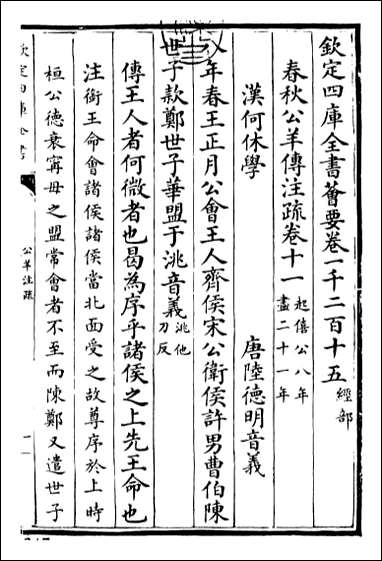 欽定四庫全書薈要卷一千二百十五 經部
春秋公羊傳注疏卷十一 起僖公八年 盡二十一年
漢何休學 唐陸德明音義
八年春王正月公會王人齊侯宋公衛侯許男曹伯陳
世子款鄭世子華盟于洮音義 洮他刀反
傳王人者何微者也曷為序乎諸侯之上先王命也
注銜王命會諸侯諸侯當北面受之故尊序於上時
桓公德衰甯毋之盟常會者不至而陳鄭又遣世子
欽定四庫全書
公羊注疏
一